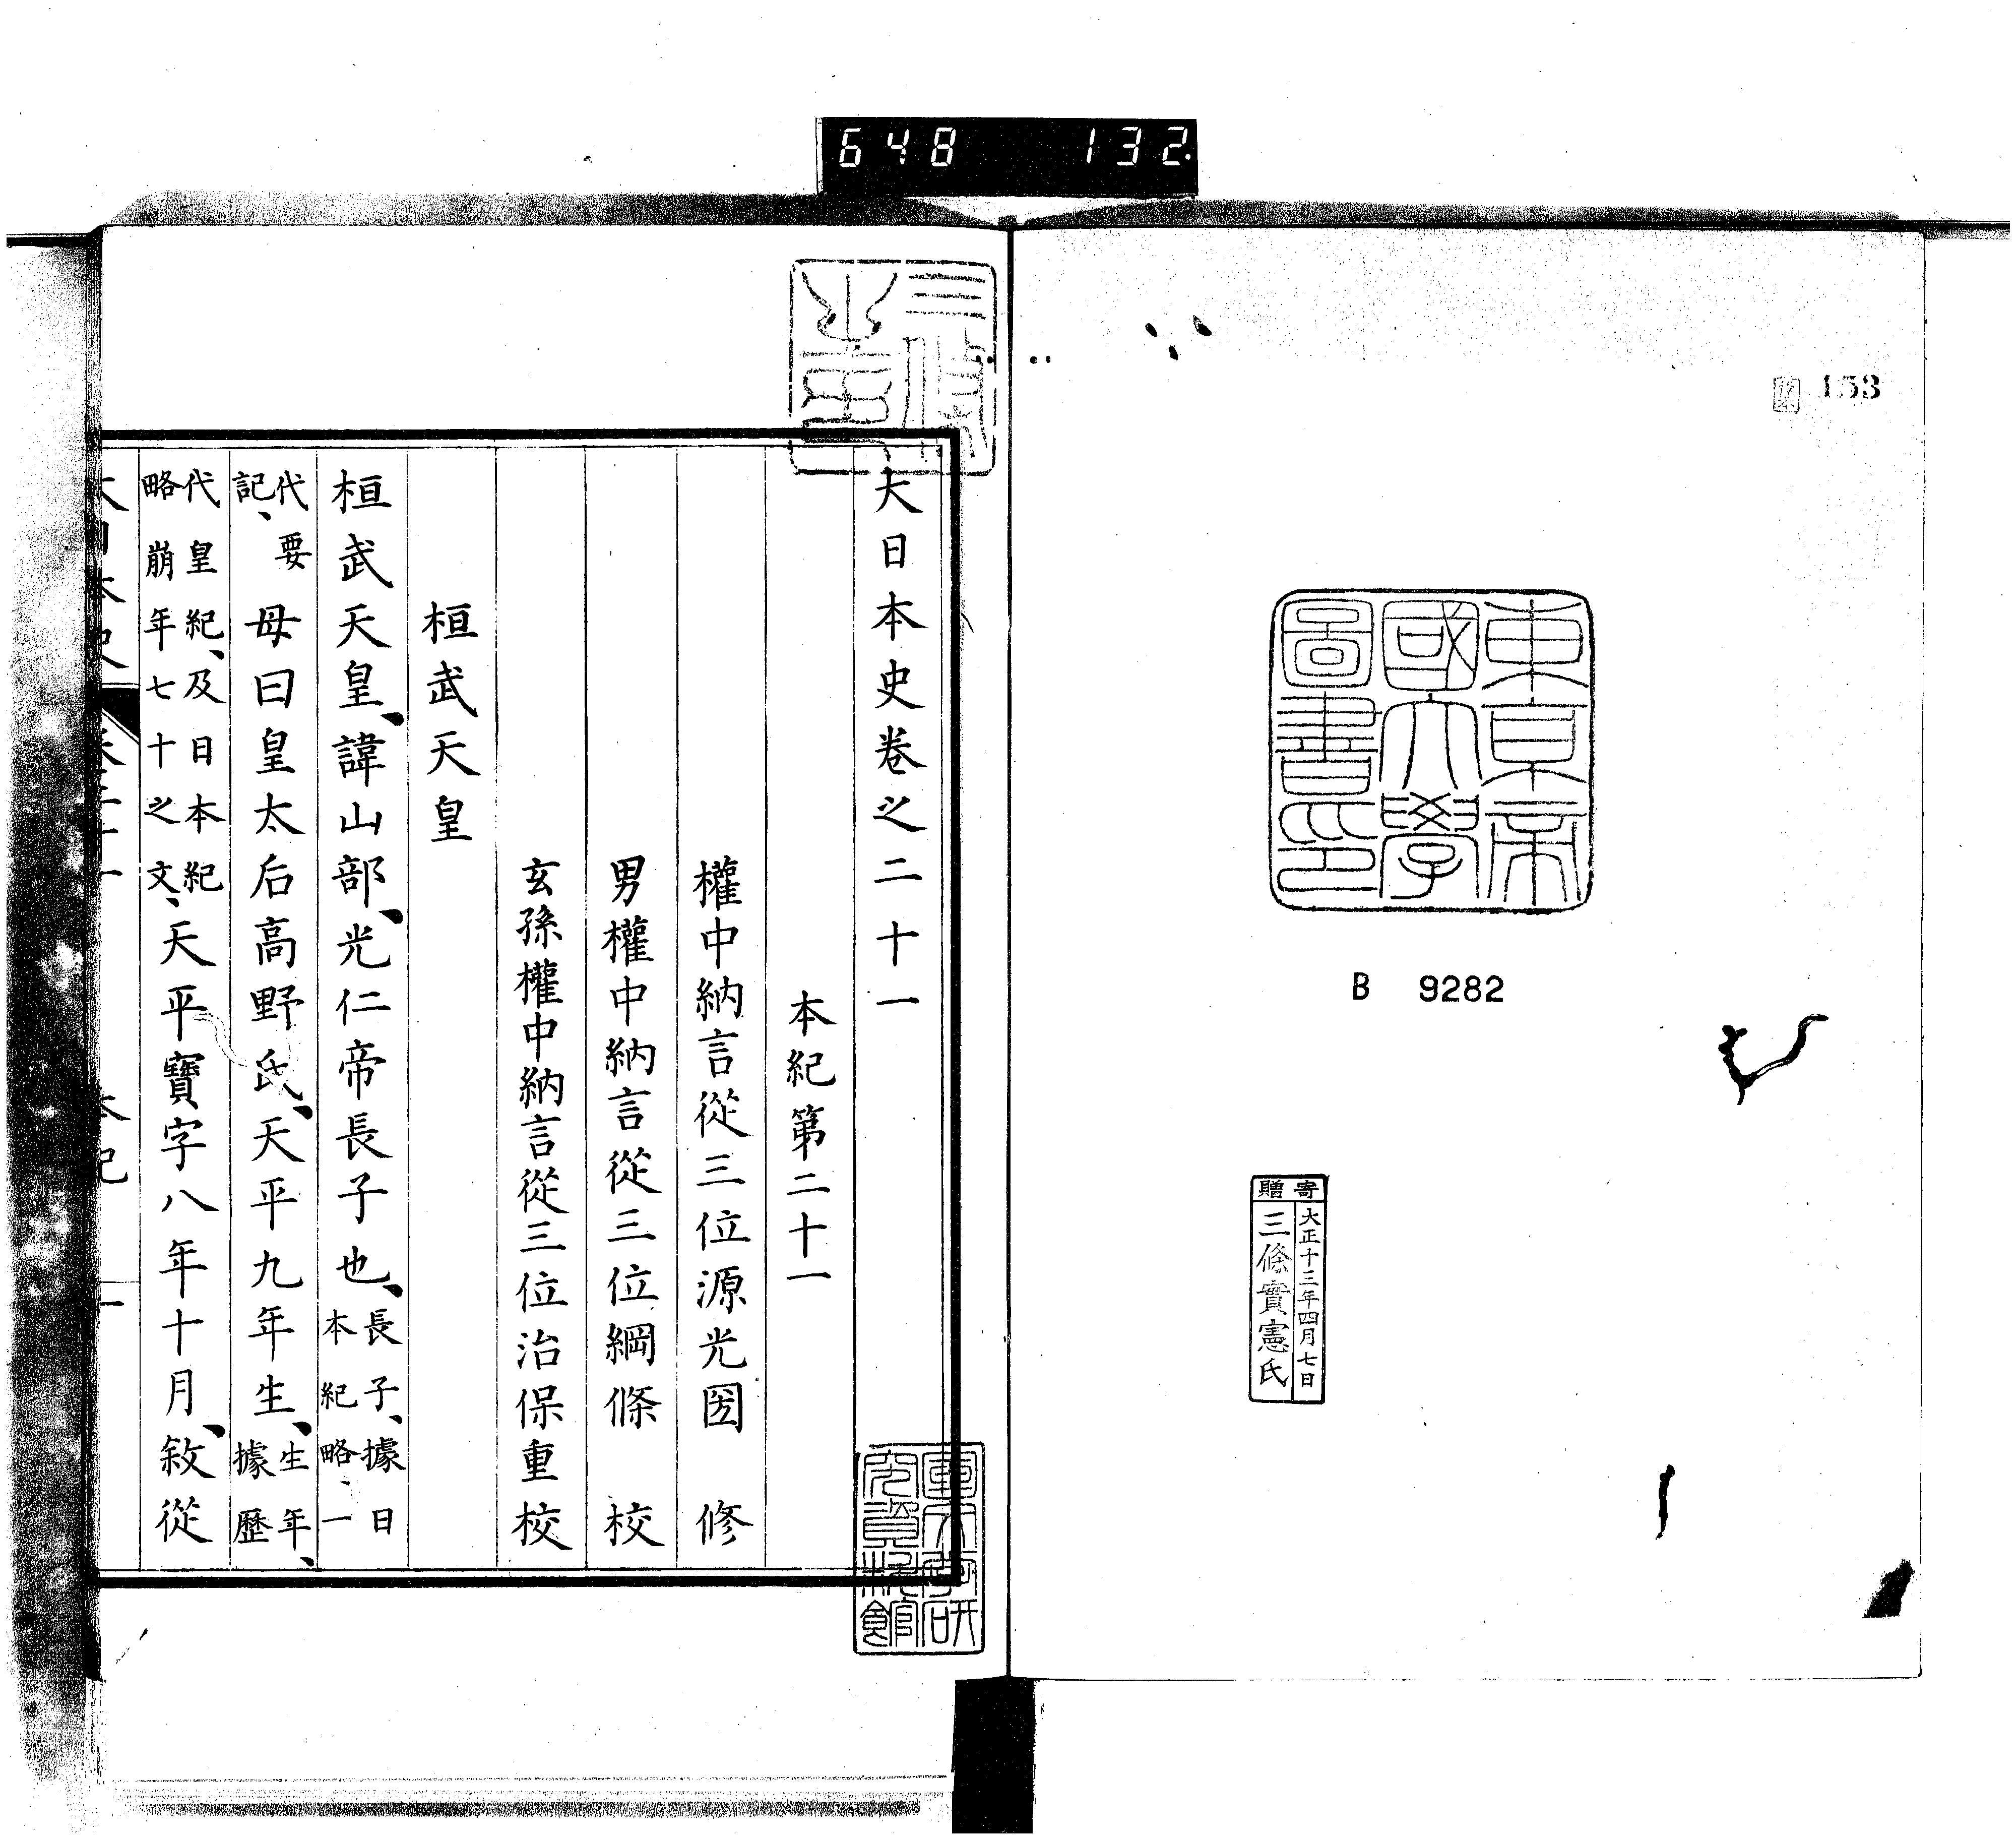 648 132
153
東京帝
國大學
圖書印
B 9282
寄贈
大正十三年四月七日
三條實憲氏
大日本史卷之二十一
本紀第二十一
權中納言從三位源光圀 修
男權中納言從三位綱條 校
玄孫權中納言從三位治保重校
桓武天皇
桓武天皇、諱山部、光仁帝長子也、長子、據日本紀略、一
代要記、母曰皇太后高野氏、天平九年生、生年、據歷
代皇紀、及日本紀略崩年七十之文、天平寶字八年十月、敘從